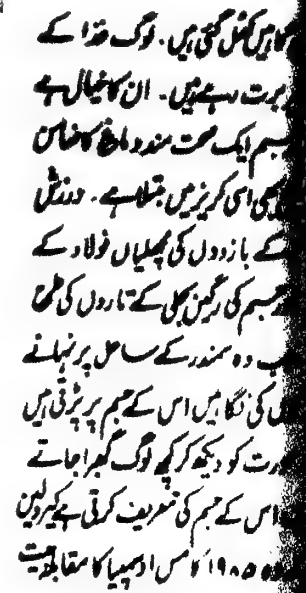 نگاہیں کھل گئی ہیں۔ لوگ غذا کے
برت رہے ہیں۔ ان کا خیال ہے
جسم ایک صحت مند دماغ کا ضامن
بھی اسی کریز میں مبتلا ہے۔ ورزش
کے بازووں کی مچھلیاں فولاد کے
جسم کی رگیں بجلی کے تاروں کی طرح
جب وہ سمندر کے ساحل پر نہانے
کی نگاہیں اس کے جسم پر پڑتی ہیں
عورت کو دیکھ کر کچھ لوگ گھبرا جاتے
اس کے جسم کی تعریف کرتی ہے کیرولین
وہ ۱۹۸۵ء کا مس اولمپیا کا مقابلہ جیت